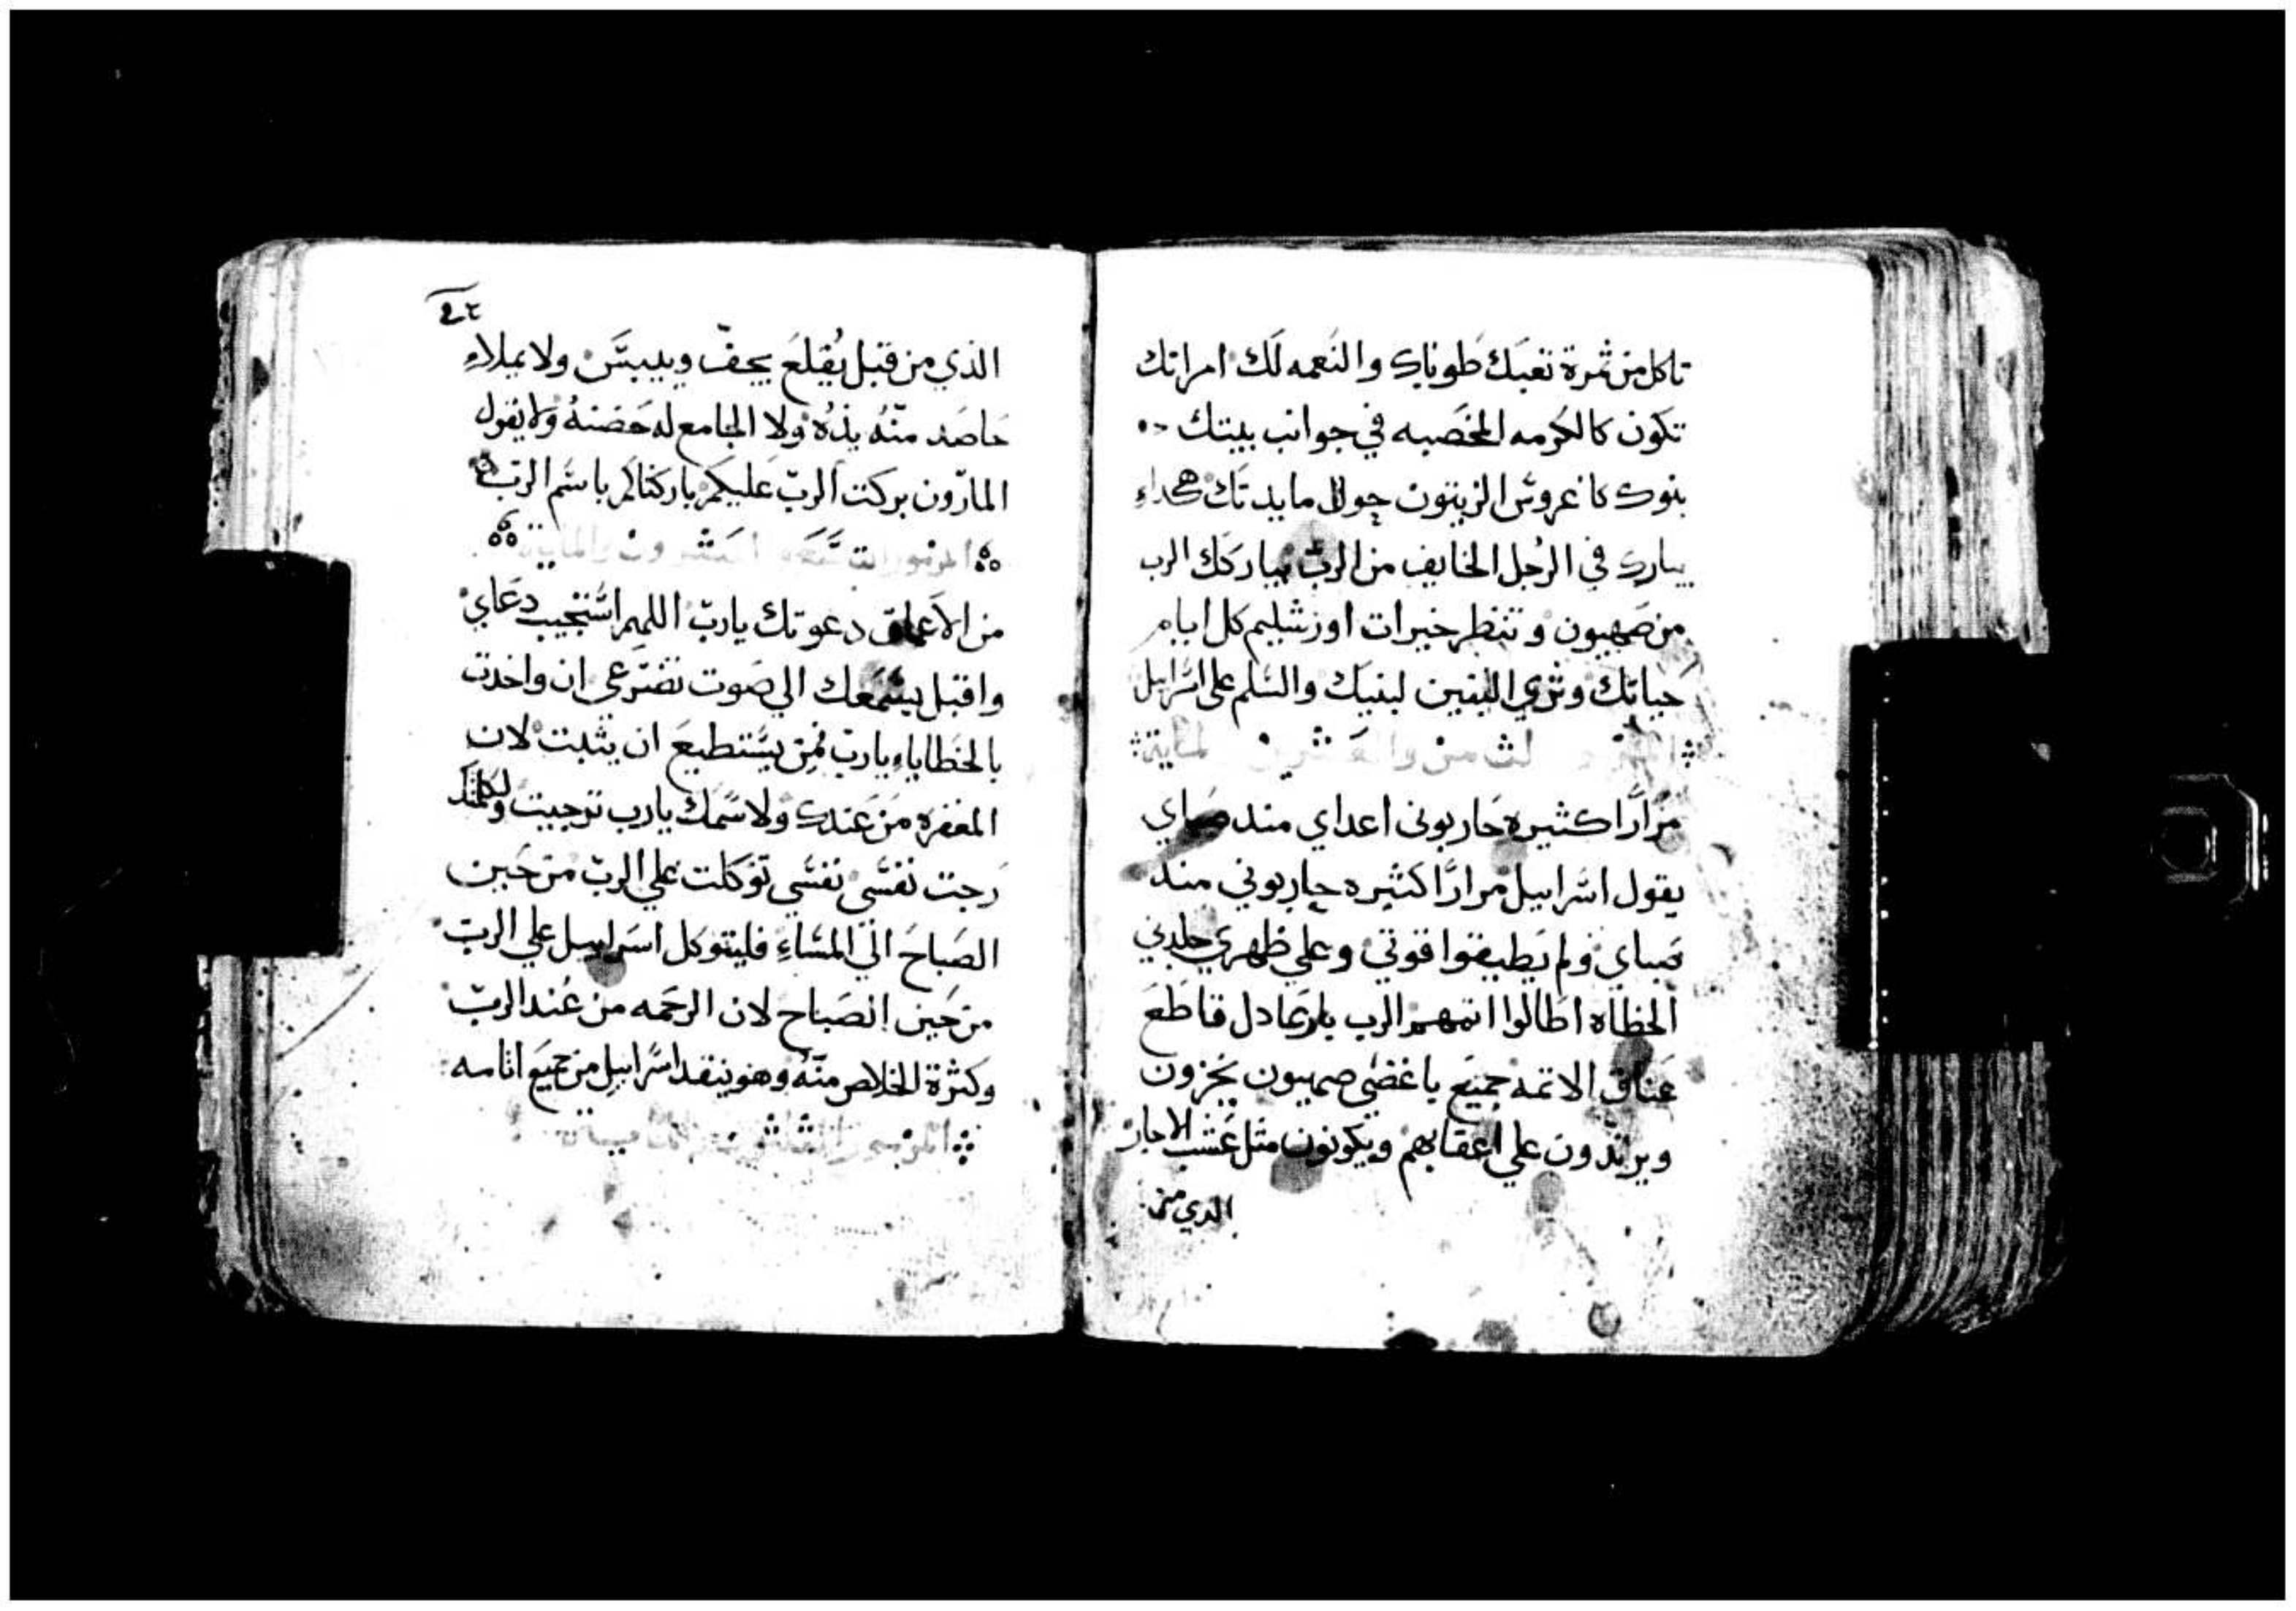 تاكل من ثمرة تعبك طوباك والنعمه لك امراتك
تكون كالكرمه المخصبه في جوانب بيتك
بنوك كاغروس الزيتون حول مايدتك هكداء
يبارك في الرجل الخايف من الرب يباركك الرب
من صهيون وتنظر خيرات اورشليم كل ايام
حياتك وترى البنين لبنيك والسلم على اسرايل
مرارًا كثيره حاربوني اعداي مند صباي
يقول اسرابيل مرارًا كثيره حاربوني مند
صباي ولم يطيقوا قوتي وعلي ظهري جلدني
الخطاه اطالوا اتمهم الرب بار عادل قاطع
عناق الاتمه جميع باغضي صهيون يخزون
ويرتدون علي اعقابهم ويكونون مثل عشب الاجار
الدي من
الذي من قبل يُقلع يجفّ وييبس ولا يملاء
حاصد منّه يدُه ولا الجامع له حضنهُ ولا يقول
المارّون بركت الربّ عليكم باركناكم باسم الربّ
المزمور التسعه العشرون والمايه
من الاعماق دعوتك ياربّ اللهم استجيب دعاي
واقبل بسمعك الي صوت تضرّعي ان واخدت
بالخطاياء يارب فمن يستطيع ان يثبت لان
المغفره من عندك ولاسمك يارب ترجيت ولكلمتك
رجت نفسي نفسي توكلت علي الربّ من حين
الصباح الي المساءِ فليتوكل اسرابيل علي الربّ
من حين الصباح لان الرحمه من عند الربّ
وكثرة الخلاص منّهُ وهو ينقد اسرابيل من جميع اتامه